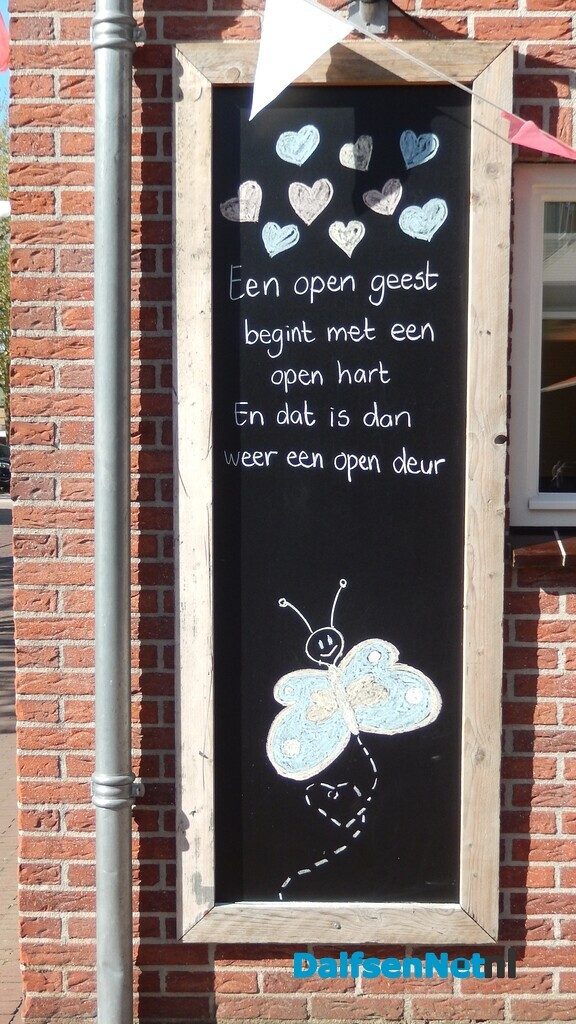 Een open geest
begint met een
open hart
En dat is dan
weer een open deur
DalfsenNet.nl